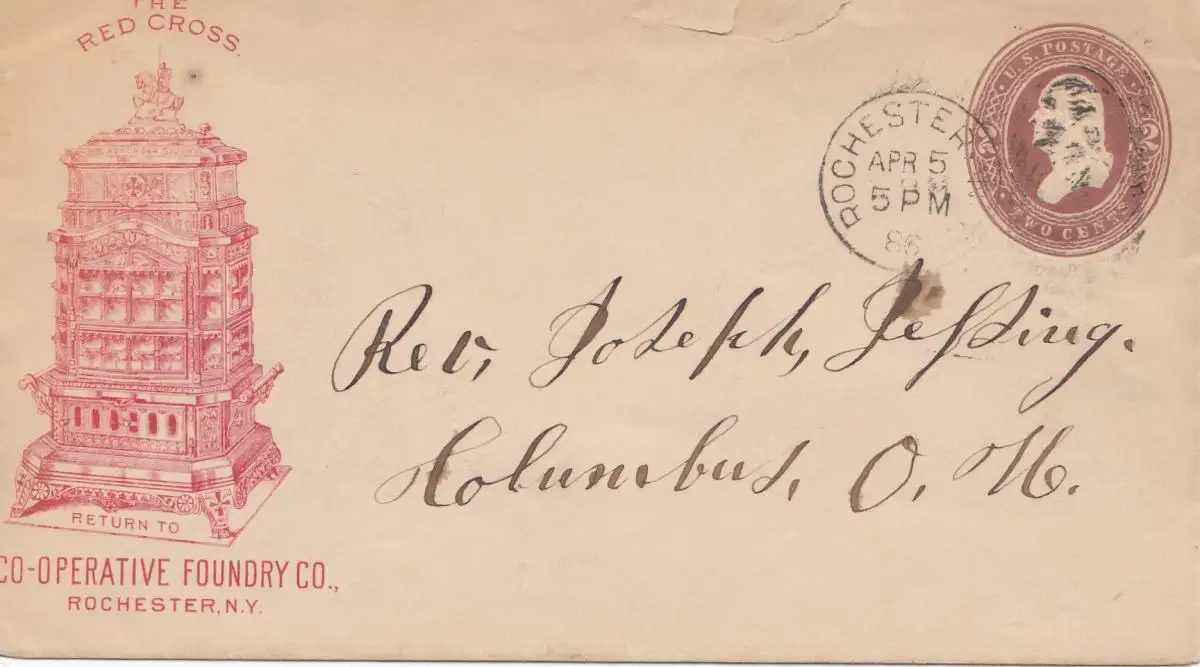 THE
RED CROSS.
RETURN TO
CO-OPERATIVE FOUNDRY CO.,
ROCHESTER, N.Y.
ROCHESTER,
APR 5
5 PM
86
U.S. POSTAGE
2
2
TWO CENTS
Rev, Joseph, Jessing.
Columbus, O, H.